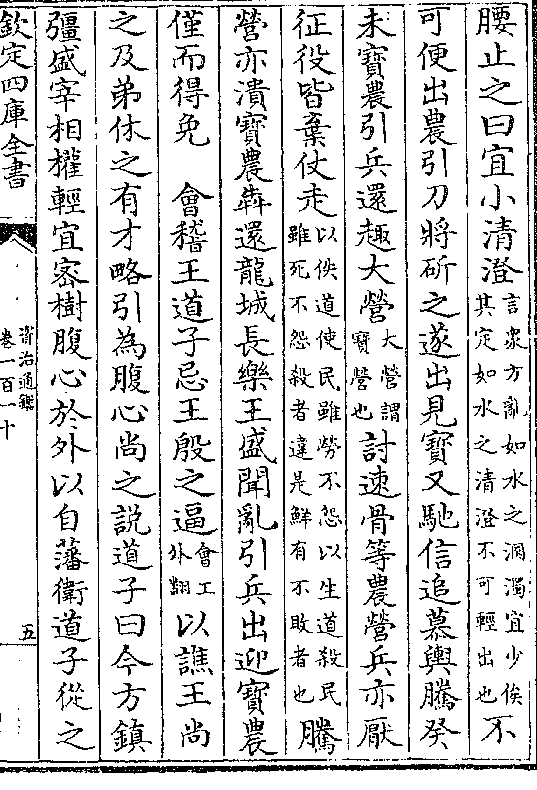 腰止之曰宜小清澄言衆方亂如水之溷濁宜少俟其定如水之清澄不可輕出也不
可便出農引刀將斫之遂出見寶又馳信追慕輿騰癸
未寶農引兵還趣大營大營謂寶營也討速骨等農營兵亦厭
征役皆棄仗走以佚道使民雖勞不怨以生道殺民雖死不怨殺者違是鮮有不敗者也騰
營亦潰寶農犇還龍城長樂王盛聞亂引兵出迎寶農
僅而得免 會稽王道子忌王殷之逼會工外翻以譙王尚
之及弟休之有才略引為腹心尚之説道子曰今方鎮
彊盛宰相權輕宜宻樹腹心於外以自藩衛道子從之
欽定四庫全書
資治通鑑
卷一百一十
五